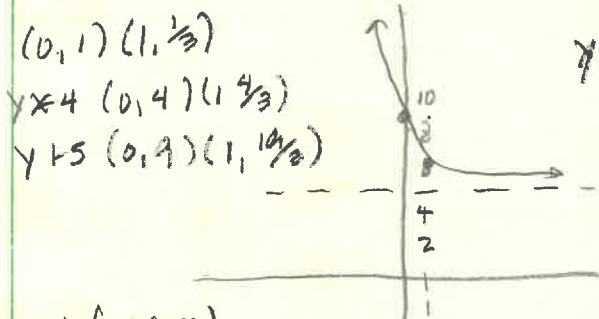 (0, 1) (1, 1/3)
y x 4 (0, 4) (1 4/3)
y + 5 (0, 9) (1, 19/3)
y
10
8
4
2